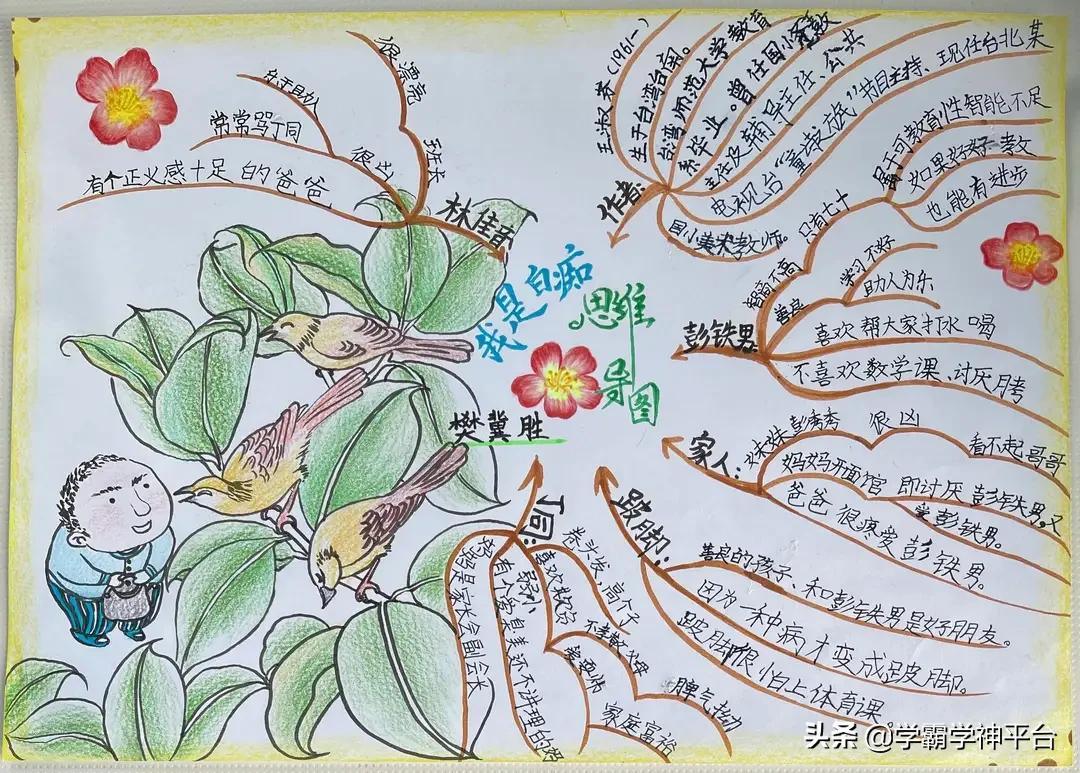 我是白痴
思维
导图
樊冀胜
林佳音
班长
很漂亮
很凶
常常骂丁同
有个正义感十足的爸爸
作者:
王淑芬(1961-)
生于台湾台南。
台湾师范大学教育
系毕业。曾任国小
主任及辅导主任、公共
电视台
节目主持、现任台北某
国小美术教师。
彭铁男
智商不高
只有七十
属于可教育性智能不足
如果好好教
也能有进步
善良
学习不好
助人为乐
喜欢帮大家打水喝
不喜欢数学课、讨厌月考
家人:
妹妹彭秀秀
很凶
看不起哥哥
妈妈开面馆
即讨厌彭铁男。又
彭铁男。
爸爸很疼爱彭铁男。
跛脚:
善良的孩子、和彭铁男是好朋友。
因为一种病才变成跛脚。
跛脚很怕上体育课。
丁同:
卷沙发、高个子
喜欢欺负
弱小
不孝敬父母
家庭富裕
脾气拗
有个爱臭美还不讲理的妈
妈妈是家长会副会长
头条 @学霸学神平台